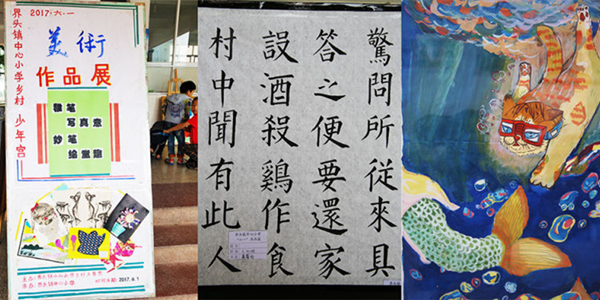 2017·六·一
界头镇中心小学乡村 少年宫
美術
作品展
笔
写真意
妙笔
绘童趣
2017.6.1
驚問所從來具
答之便要還家
設酒殺鷄作食
村中聞有此人